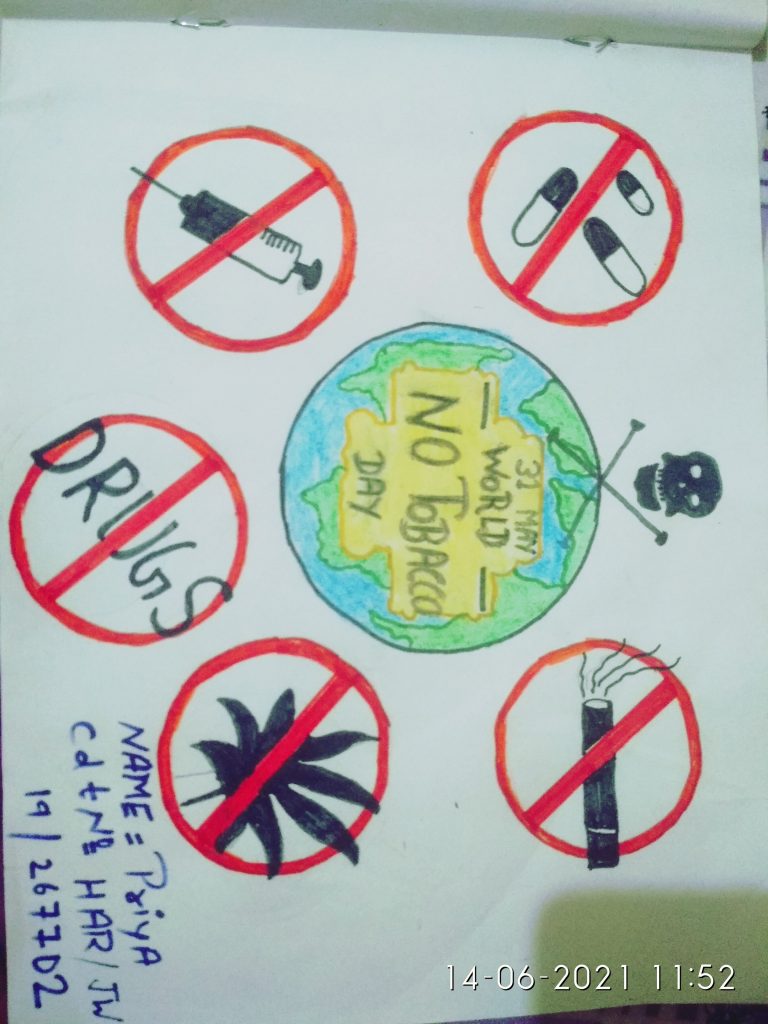 31 MAY
WORLD
NO TOBACCO
DAY
DRUGS
NAME = PriyA
Cdt Nº HAR/JW
19/267702
14-06-2021 11:52